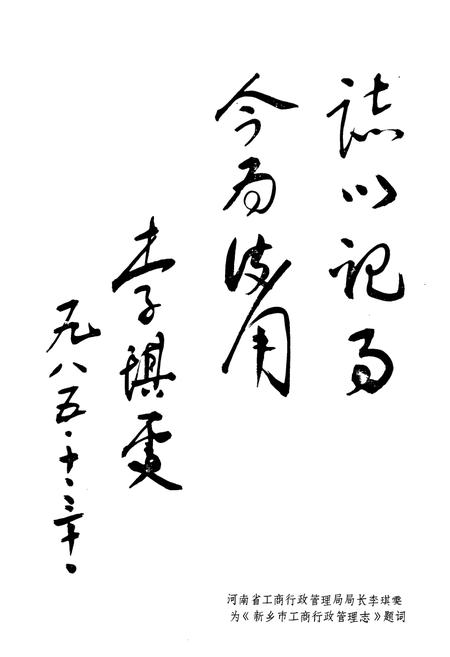 誌以記事
今为後用
李琪雯
一九八五·十·三十·
河南省工商行政管理局局长李琪雯
为《新乡市工商行政管理志》题词